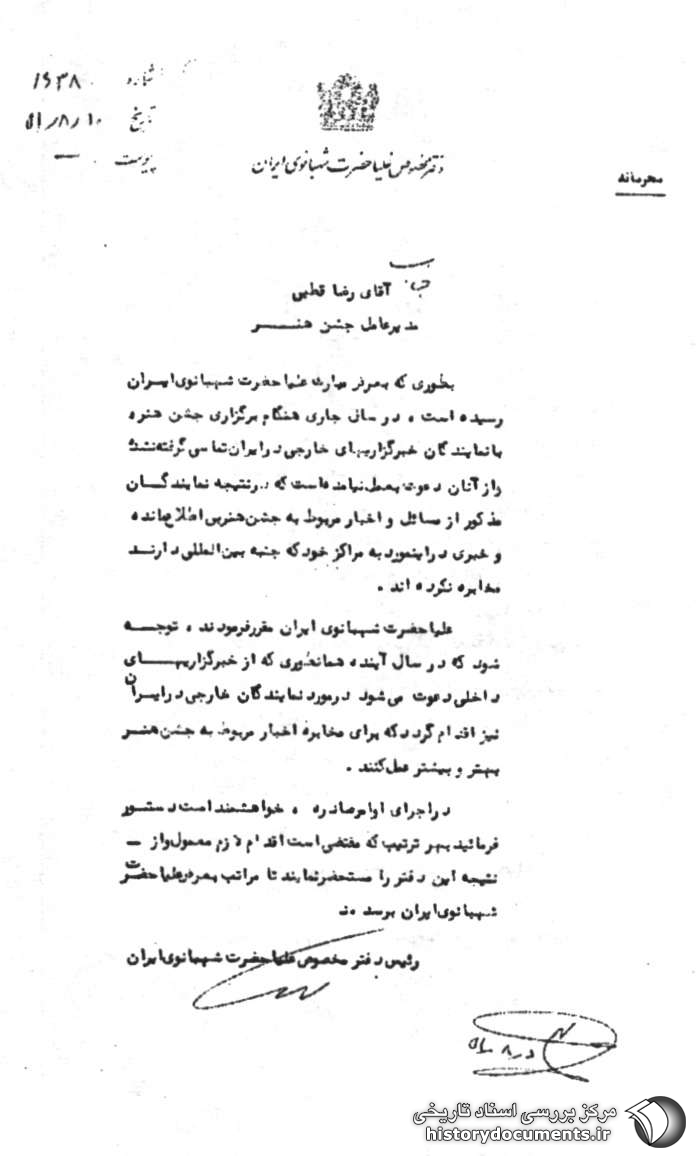 شماره ۱۶۳۸۰
تاریخ ۵۱/۸/۱۰
پیوست —
دفتر مخصوص علیاحضرت شهبانوی ایران
محرمانه
جناب آقای رضا قطبی
مدیرعامل جشن هنر
بطوری که بعرض مبارک علیاحضرت شهبانوی ایران
رسیده است ، در سال جاری هنگام برگزاری جشن هنر
با نمایندگان خبرگزاریهای خارجی در ایران تماس گرفته نشده
و از آنان دعوت بعمل نیامده است که در نتیجه نمایندگان
مذکور از مسائل و اخبار مربوط به جشن هنر بی اطلاع مانده
و خبری در اینمورد به مراکز خود که جنبه بین المللی دارند
مخابره نکرده اند .
علیاحضرت شهبانوی ایران مقرر فرمودند ، توجه
شود که در سال آینده همانطوری که از خبرگزاریهای
داخلی دعوت می شود در مورد نمایندگان خارجی در ایران
نیز اقدام گردد که برای مخابره اخبار مربوط به جشن هنر
بهتر و بیشتر عمل کنند .
در اجرای اوامر صادره ، خواهشمند است دستور
فرمائید بهر ترتیب که مقتضی است اقدام لازم معمول و از
نتیجه این دفتر را مستحضر نمایند تا مراتب بعرض علیاحضرت
شهبانوی ایران برسد .
رئیس دفتر مخصوص علیاحضرت شهبانوی ایران
مرکز بررسی اسناد تاریخی
historydocuments.ir